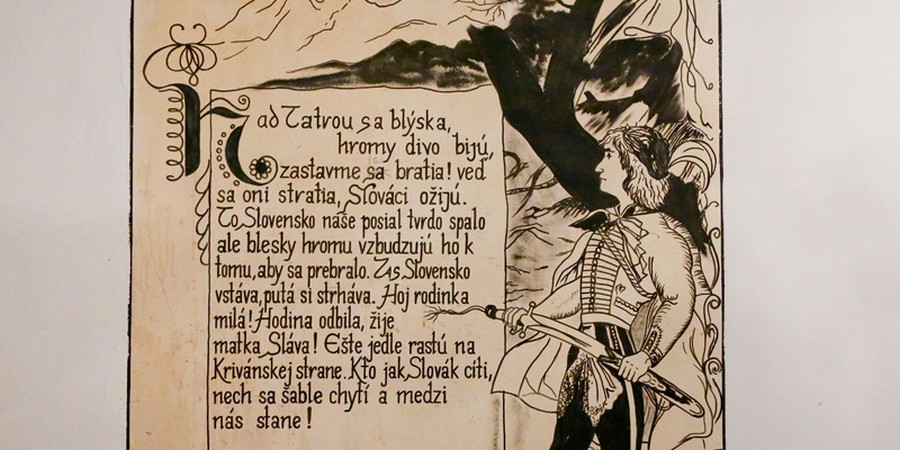 Nad Tatrou sa blýska,
hromy divo bijú,
zastavme sa bratia! veď
sa oni stratia, Slováci ožijú.
To Slovensko naše posial tvrdo spalo
ale blesky hromu vzbudzujú ho k
tomu, aby sa prebralo. Už Slovensko
vstáva, putá si strháva. Hoj rodinka
milá! Hodina odbila, žije
matka Sláva! Ešte jedle rastú na
Krivánskej strane. Kto jak Slovák cíti,
nech sa šable chytí a medzi
nás stane!